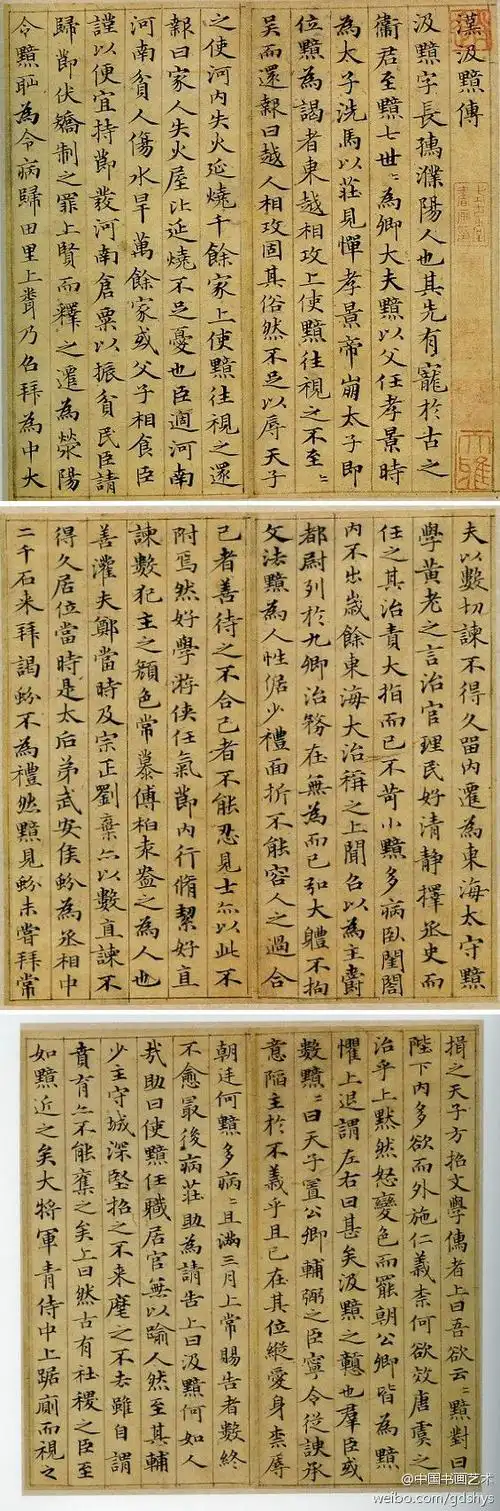 漢汲黯傳
汲黯字長孺濮陽人也其先有寵於古之
衞君至黯七世〻為卿大夫黯以父任孝景時
為太子洗馬以莊見憚孝景帝崩太子即
位黯為謁者東越相攻上使黯往視之不至〻
吳而還報曰越人相攻固其俗然不足以辱天子
之使河内失火延燒千餘家上使黯往視之還
報曰家人失火屋比延燒不足憂也臣適河南
河南貧人傷水旱萬餘家或父子相食臣
謹以便宜持節發河南倉粟以振貧民臣請
歸節伏矯制之罪上賢而釋之遷為滎陽
令黯恥為令病歸田里上聞乃召拜為中大
夫以數切諫不得久留内遷為東海太守黯
學黃老之言治官理民好清静擇丞史而
任之其治責大指而已不苛小黯多病臥閨閤
内不出歲餘東海大治稱之上聞召以為主爵
都尉列於九卿治務在無為而已弘大體不拘
文法黯為人性倨少禮面折不能容人之過合
己者善待之不合己者不能忍見士亦以此不
附焉然好學游俠任氣節内行脩絜好直
諫數犯主之顏色常慕傅柏袁盎之為人也
善灌夫鄭當時及宗正劉棄亦以數直諫不
得久居位當時是太后弟武安侯蚡為丞相中
二千石来拜謁蚡不為禮然黯見蚡未嘗拜常
揖之天子方招文學儒者上曰吾欲云〻黯對曰
陛下内多欲而外施仁義柰何欲效唐虞之
治乎上黙然怒變色而罷朝公卿皆為黯
懼上退謂左右曰甚矣汲黯之戇也羣臣或
數黯〻曰天子置公卿輔弼之臣寧令從諛承
意陷主於不義乎且已在其位縱愛身柰辱
朝廷何黯多病〻且滿三月上常賜告者數終
不愈最後病莊助為請告上曰汲黯何如人
哉助曰使黯任職居官無以踰人然至其輔
少主守城深堅招之不来麾之不去雖自謂
賁育亦不能奪之矣上曰然古有社稷之臣至
如黯近之矣大將軍青侍中上踞廁而視之
@中国书画艺术
weibo.com/gdshys